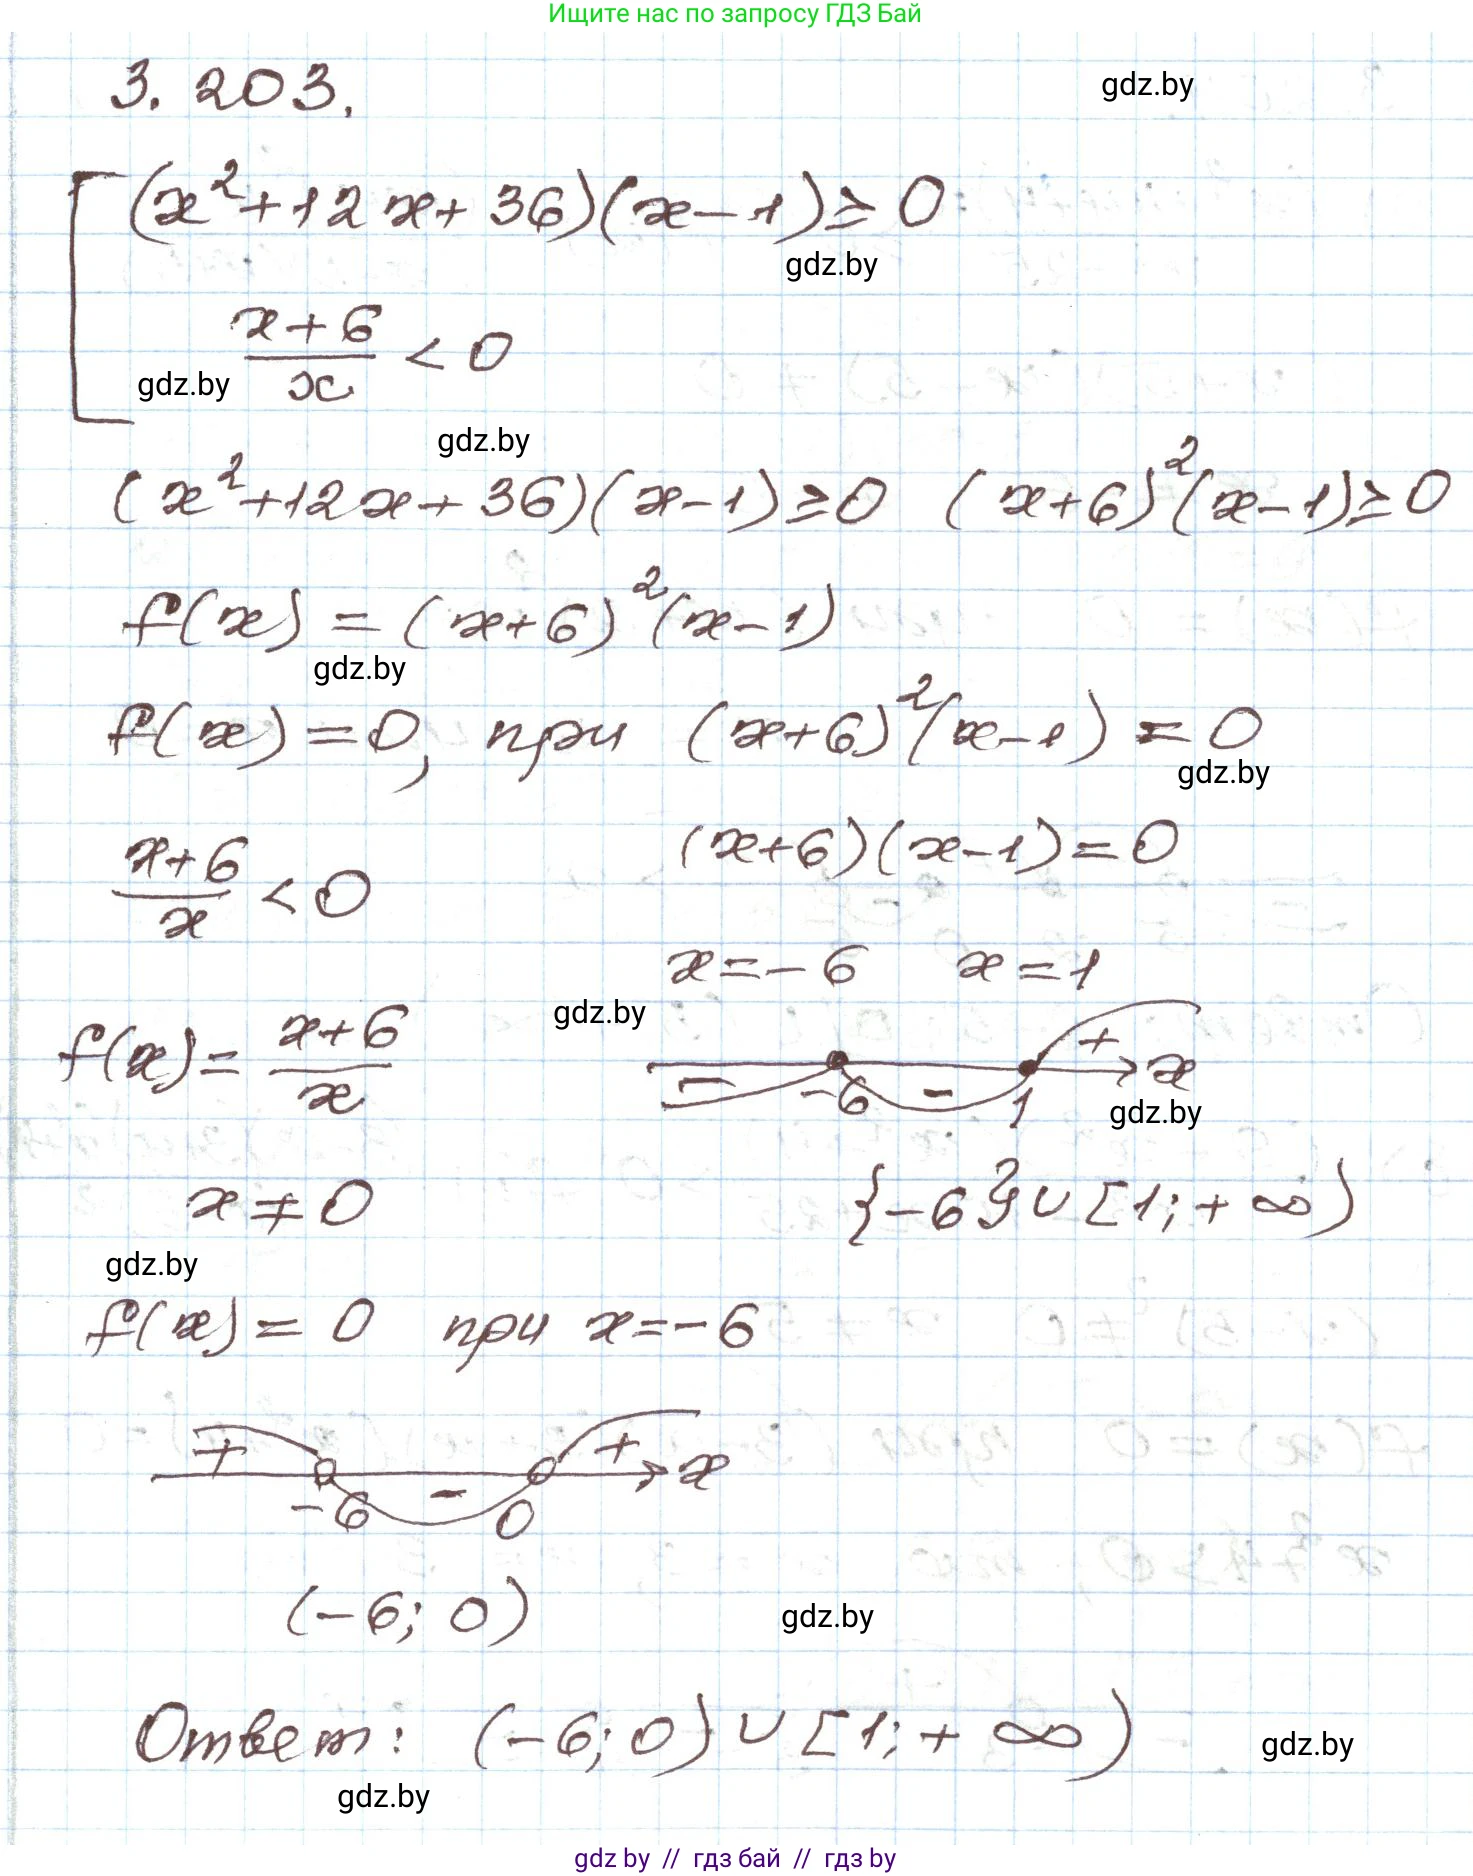 Ищите нас по запросу ГДЗ Бай
3.203.
gdz.by
(x²+12x+36)(x-1)≥0
gdz.by
x+6
— < 0
x
gdz.by
gdz.by
(x²+12x+36)(x-1)≥0 (x+6)²(x-1)≥0
f(x) = (x+6)²(x-1)
gdz.by
f(x)=0, при (x+6)²(x-1)=0
gdz.by
(x+6)(x-1)=0
x+6
— < 0
x
x=-6 x=1
gdz.by
f(x)= x+6
—
x
+ x
- -6 - 1
gdz.by
x≠0
{-6}∪[1;+∞)
gdz.by
f(x)=0 при x=-6
+ + x
-6 - 0
(-6; 0)
gdz.by
Ответ: (-6; 0)∪[1;+∞)
gdz.by
gdz.by
gdz by // гдз бай // гдз by